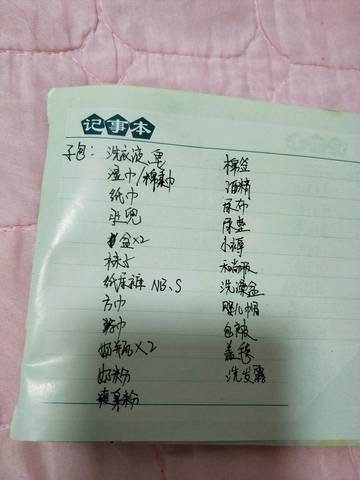 记事本
子包：洗衣液,皂
湿巾/棉柔巾
纸巾
盆×2
袜子
纸尿裤 NB、S
方巾
浴巾
奶瓶×2
奶粉
爽身粉
棉签
酒精
尿布
尿垫
小裤
和尚服
洗澡盆
婴儿帽
包被
盖毯
洗发露